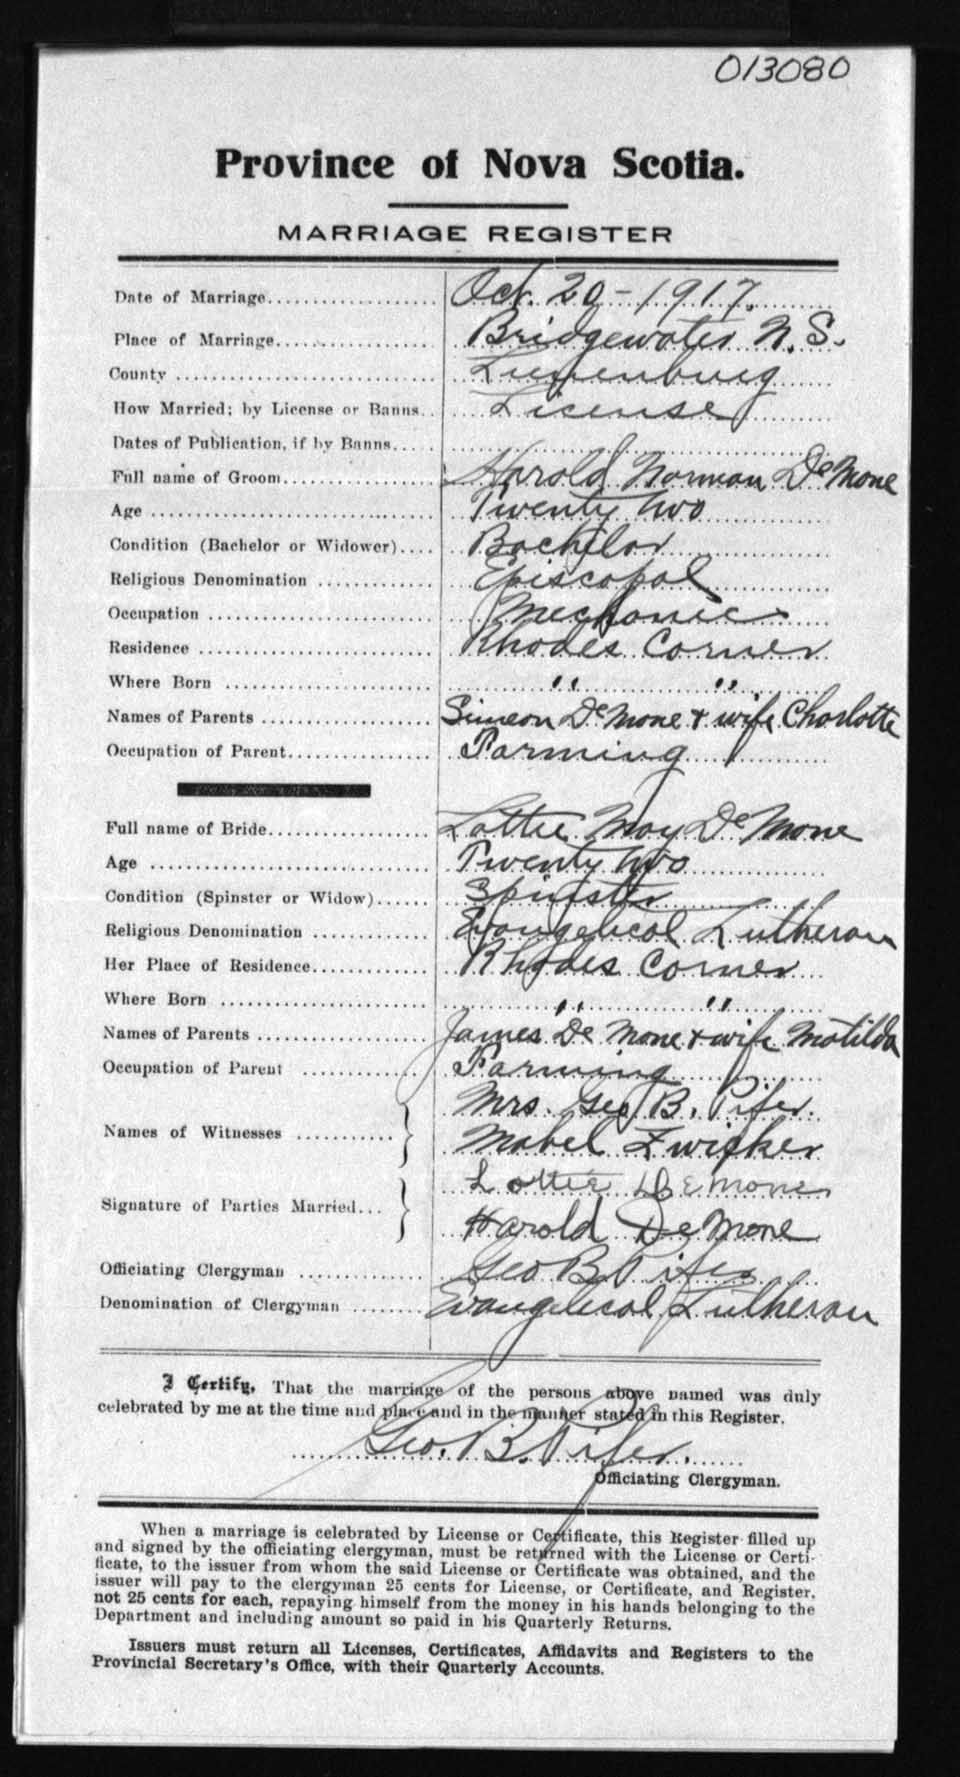 013080
Province of Nova Scotia.
MARRIAGE REGISTER
Date of Marriage.................... Oct. 20 - 1917.
Place of Marriage.................. Bridgewater N.S.
County ............................ Lunenburg
How Married; by License or Banns.. License
Dates of Publication, if by Banns.....
Full name of Groom................. Harold Norman DeMone
Age ............................... Twenty two
Condition (Bachelor or Widower).... Bachelor
Religious Denomination ............ Episcopal
Occupation ........................ Mechanic
Residence ......................... Rhodes Corner
Where Born ........................ " "
Names of Parents .................. Simeon DeMone & wife Charlotte
Occupation of Parent............... Farming
Full name of Bride.................. Lottie May DeMone
Age ............................... Twenty two
Condition (Spinster or Widow)...... Spinster
Religious Denomination ............ Evangelical Lutheran
Her Place of Residence............. Rhodes Corner
Where Born ........................ " "
Names of Parents .................. James DeMone & wife Matilda
Occupation of Parent .............. Farming
Mrs. Geo B. Pifer.
Names of Witnesses ...........
Mabel Zwicker
Lottie DeMone
Signature of Parties Married...
Harold DeMone
Officiating Clergyman ............. Geo B Pifer
Denomination of Clergyman ........ Evangelical Lutheran
I Certify, That the marriage of the persons above named was duly
celebrated by me at the time and place and in the manner stated in this Register.
Geo. B. Pifer.
Officiating Clergyman.
When a marriage is celebrated by License or Certificate, this Register filled up
and signed by the officiating clergyman, must be returned with the License or Certi-
ficate, to the issuer from whom the said License or Certificate was obtained, and the
issuer will pay to the clergyman 25 cents for License, or Certificate, and Register,
not 25 cents for each, repaying himself from the money in his hands belonging to the
Department and including amount so paid in his Quarterly Returns.
Issuers must return all Licenses, Certificates, Affidavits and Registers to the
Provincial Secretary's Office, with their Quarterly Accounts.